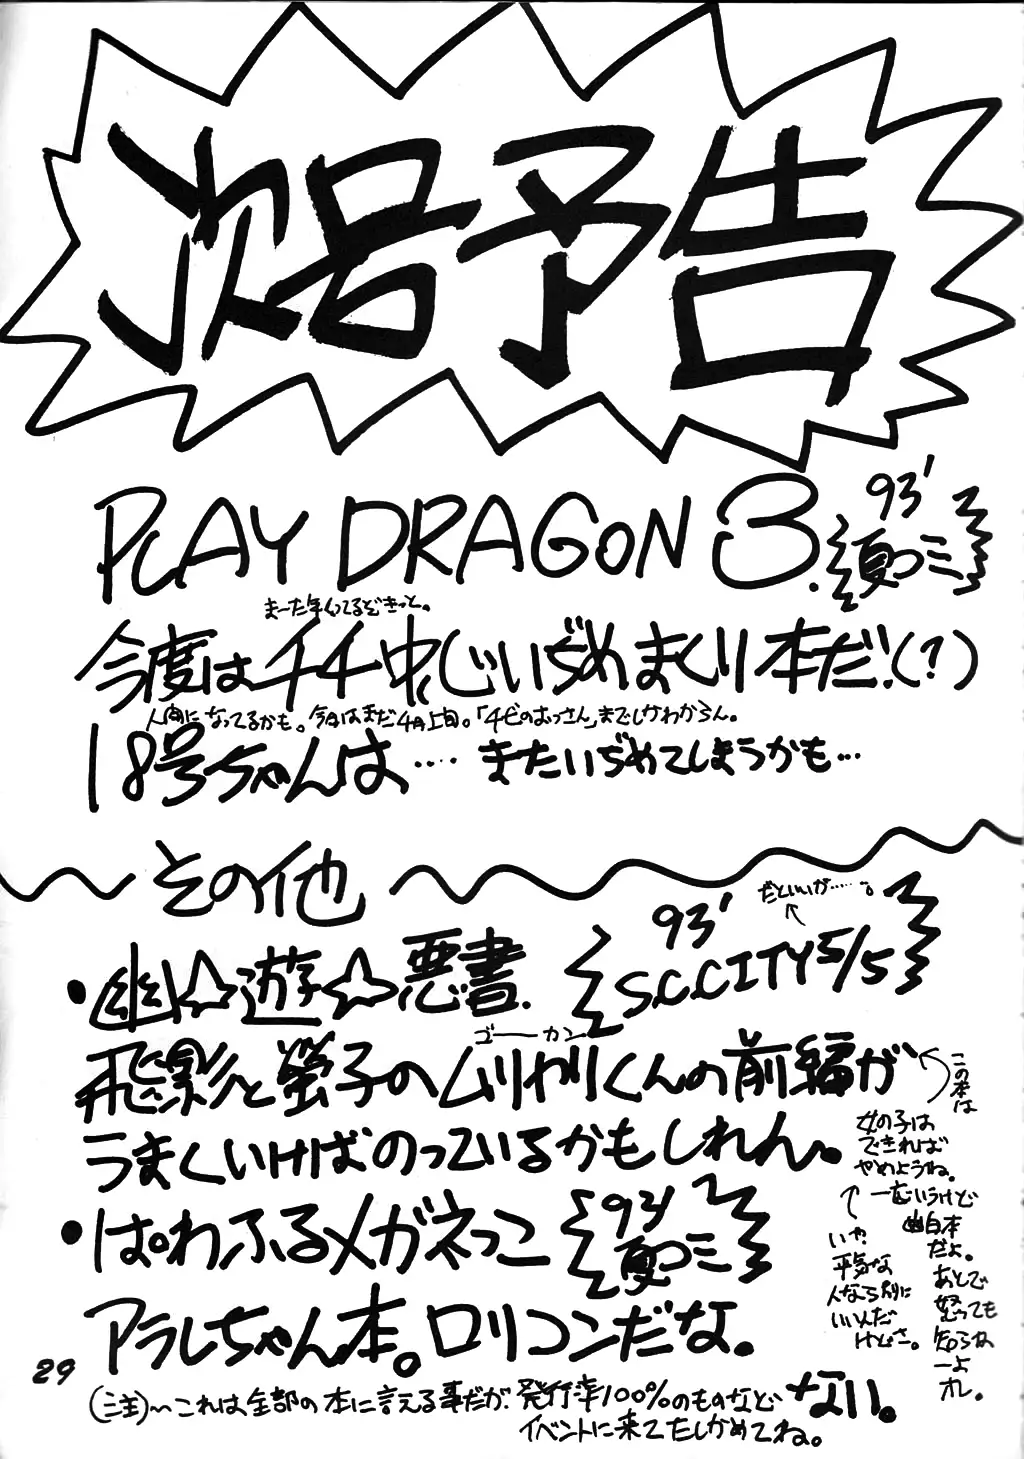 次号予告
PLAY DRAGON 3. 93' 夏コミ
まーた年くってるぞきっと。
今度はチチ中心いぢめまくり本だ!(?)
人間になってるかも。今日はまだ4月上旬。「チビのおっさん」までしかわからん。
18号ちゃんは‥‥またいぢめてしまうかも…
その他
だといいが‥‥。
・幽☆遊☆悪書. 93' S.C.CITY 5/5
ゴーカン
飛影と螢子のムリヤリくんの前編が
うまくいけばのっているかもしれん。
この本は
女の子は
できれば
やめようね。
一応いうけど
幽白本
だよ。
あとで
怒っても
知らね
ーよ
オレ。
いや
平気な
人なら別に
いいんだ
けどさ。
・ぱわふるメガネっこ 93' 夏コミ
アラレちゃん本。ロリコンだな。
29
(注)〜これは全部の本に言える事だが、発行率100%のものなどない。
イベントに来てたしかめてね。